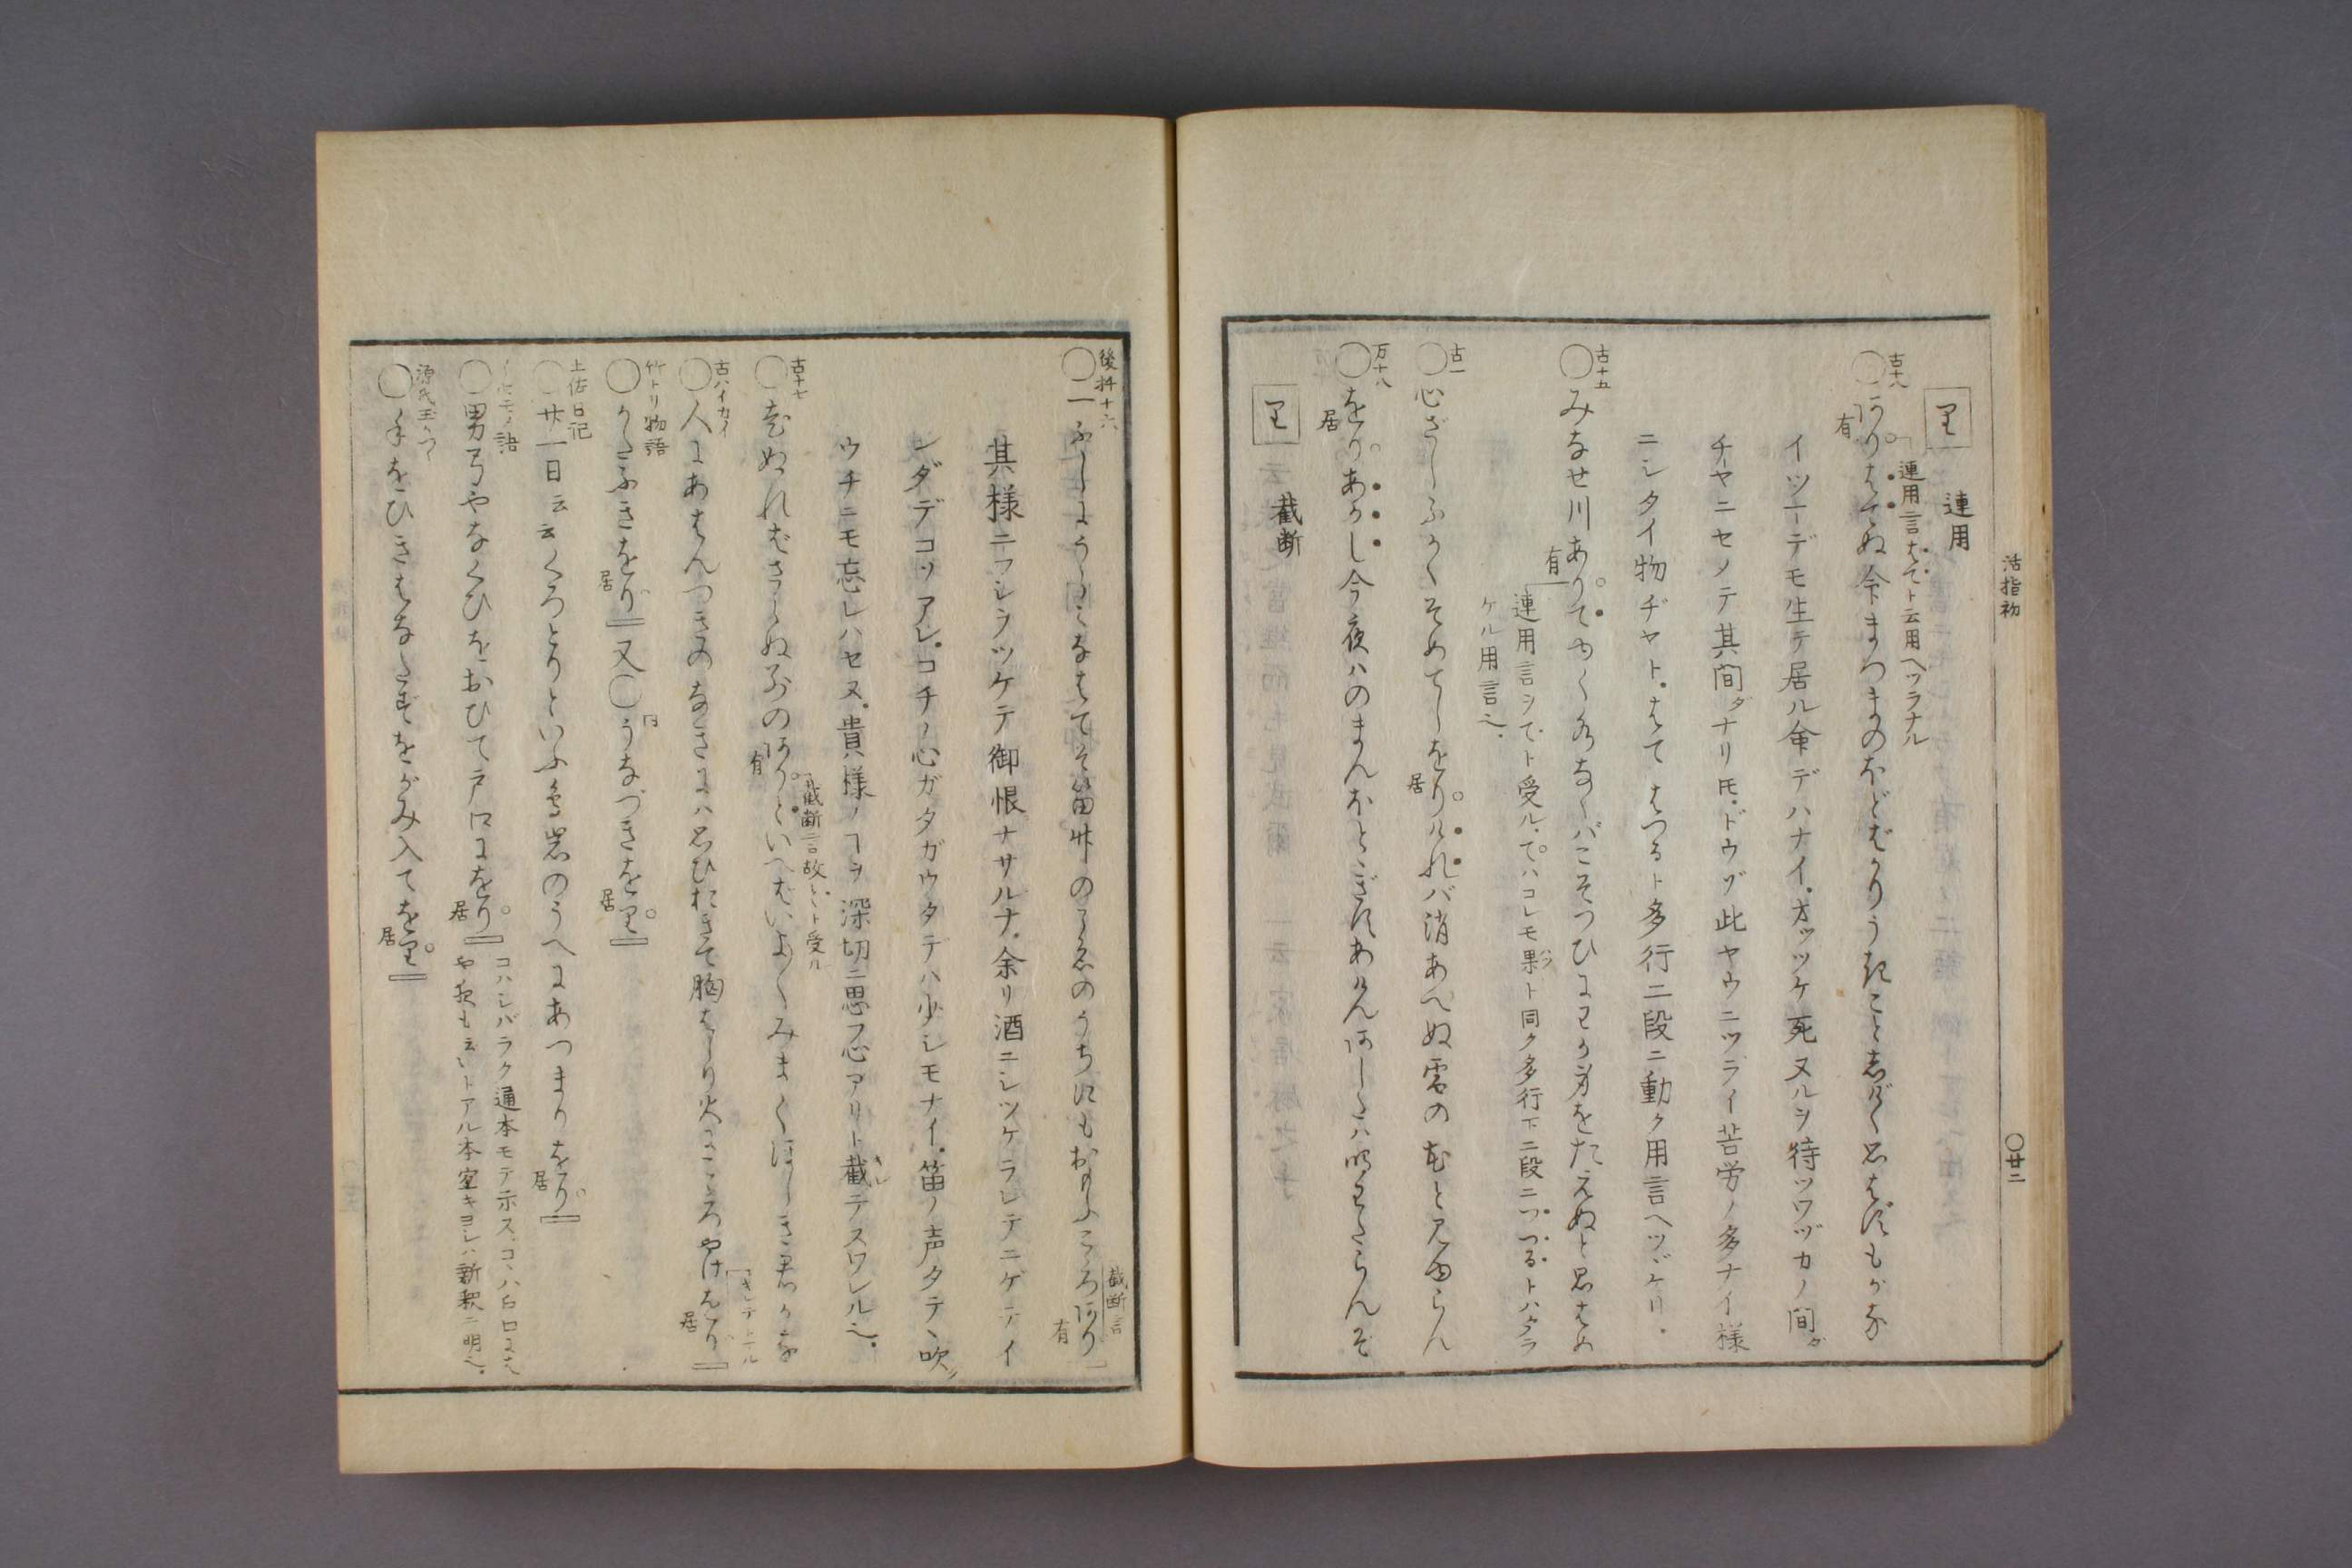 活指初
〇廿二
里
連用
古十八
〇ありはてぬ命まつまのほどばかりうきことしげく思はずもがな
有
連用言はてト云用ヘツラナル
イツーデモ生テ居ル命デハナイ.オッツケ死ヌルヲ待ツワヅカノ間ダ
チヤニセメテ其間ダナリ𪜈.ドウゾ此ヤウニツライ苦労ノ多ナイ様
ニシタイ物ヂヤト.はて はつるト多行二段ニ動ク用言ヘツヾケリ.
古十五
〇みなせ川ありてゆく水なくばこそつひにわが身をたえぬと思はめ
有
連用言ヲてト受ル.てハコレモ果ト同ク多行下二段ニつ.つるトハタラ
ケル用言也.
古一
〇心ざしふかくそめてしをりければ消あへぬ雪の花と見ゆらん
居
万十八
〇をりあかし今夜ハのまんほとゝぎすあけんあしたハ鳴わたらんぞ
居
里
截断
後拾十六
〇一ふしにうらみなはてそ笛竹のこゑのうちにもおもふこゝろあり
截断言
有
其様ニフシヲツケテ御恨ナサルナ.余リ酒ニシツケラレテニゲテイ
ンダデコソアレ.コチノ心ガタガウタデハ少シモナイ.笛ノ声タテヽ吹
ウチニモ忘レハセヌ.貴様ノヿヲ深切ニ思フ心アリト截テスワレル也.
古十七
〇老ぬればさらぬ別のありといへばいよ〳〵みまくほしき君かな
有
截断言故とト受ル
古ハイカイ
〇人にあはんつきのなきにハ思ひおきて胸はしり火にこゝろやけをり
キレテトマル
居
竹トリ物語
〇うそふきをり 又〇うなづきを里
居
居
土佐日記
〇廿一日云云くろとりといふ鳥岩のうへにあつまりをり
居
〇男弓やなぐひをおひて戸口にをり
居
コハシバラク通本モテ示ス.コヽハ戸口には
や夜も云々トアル本宜キヨシハ新釈ニ明也.
源氏玉かつら
〇手をひきはなたずをがみ入てを里
居